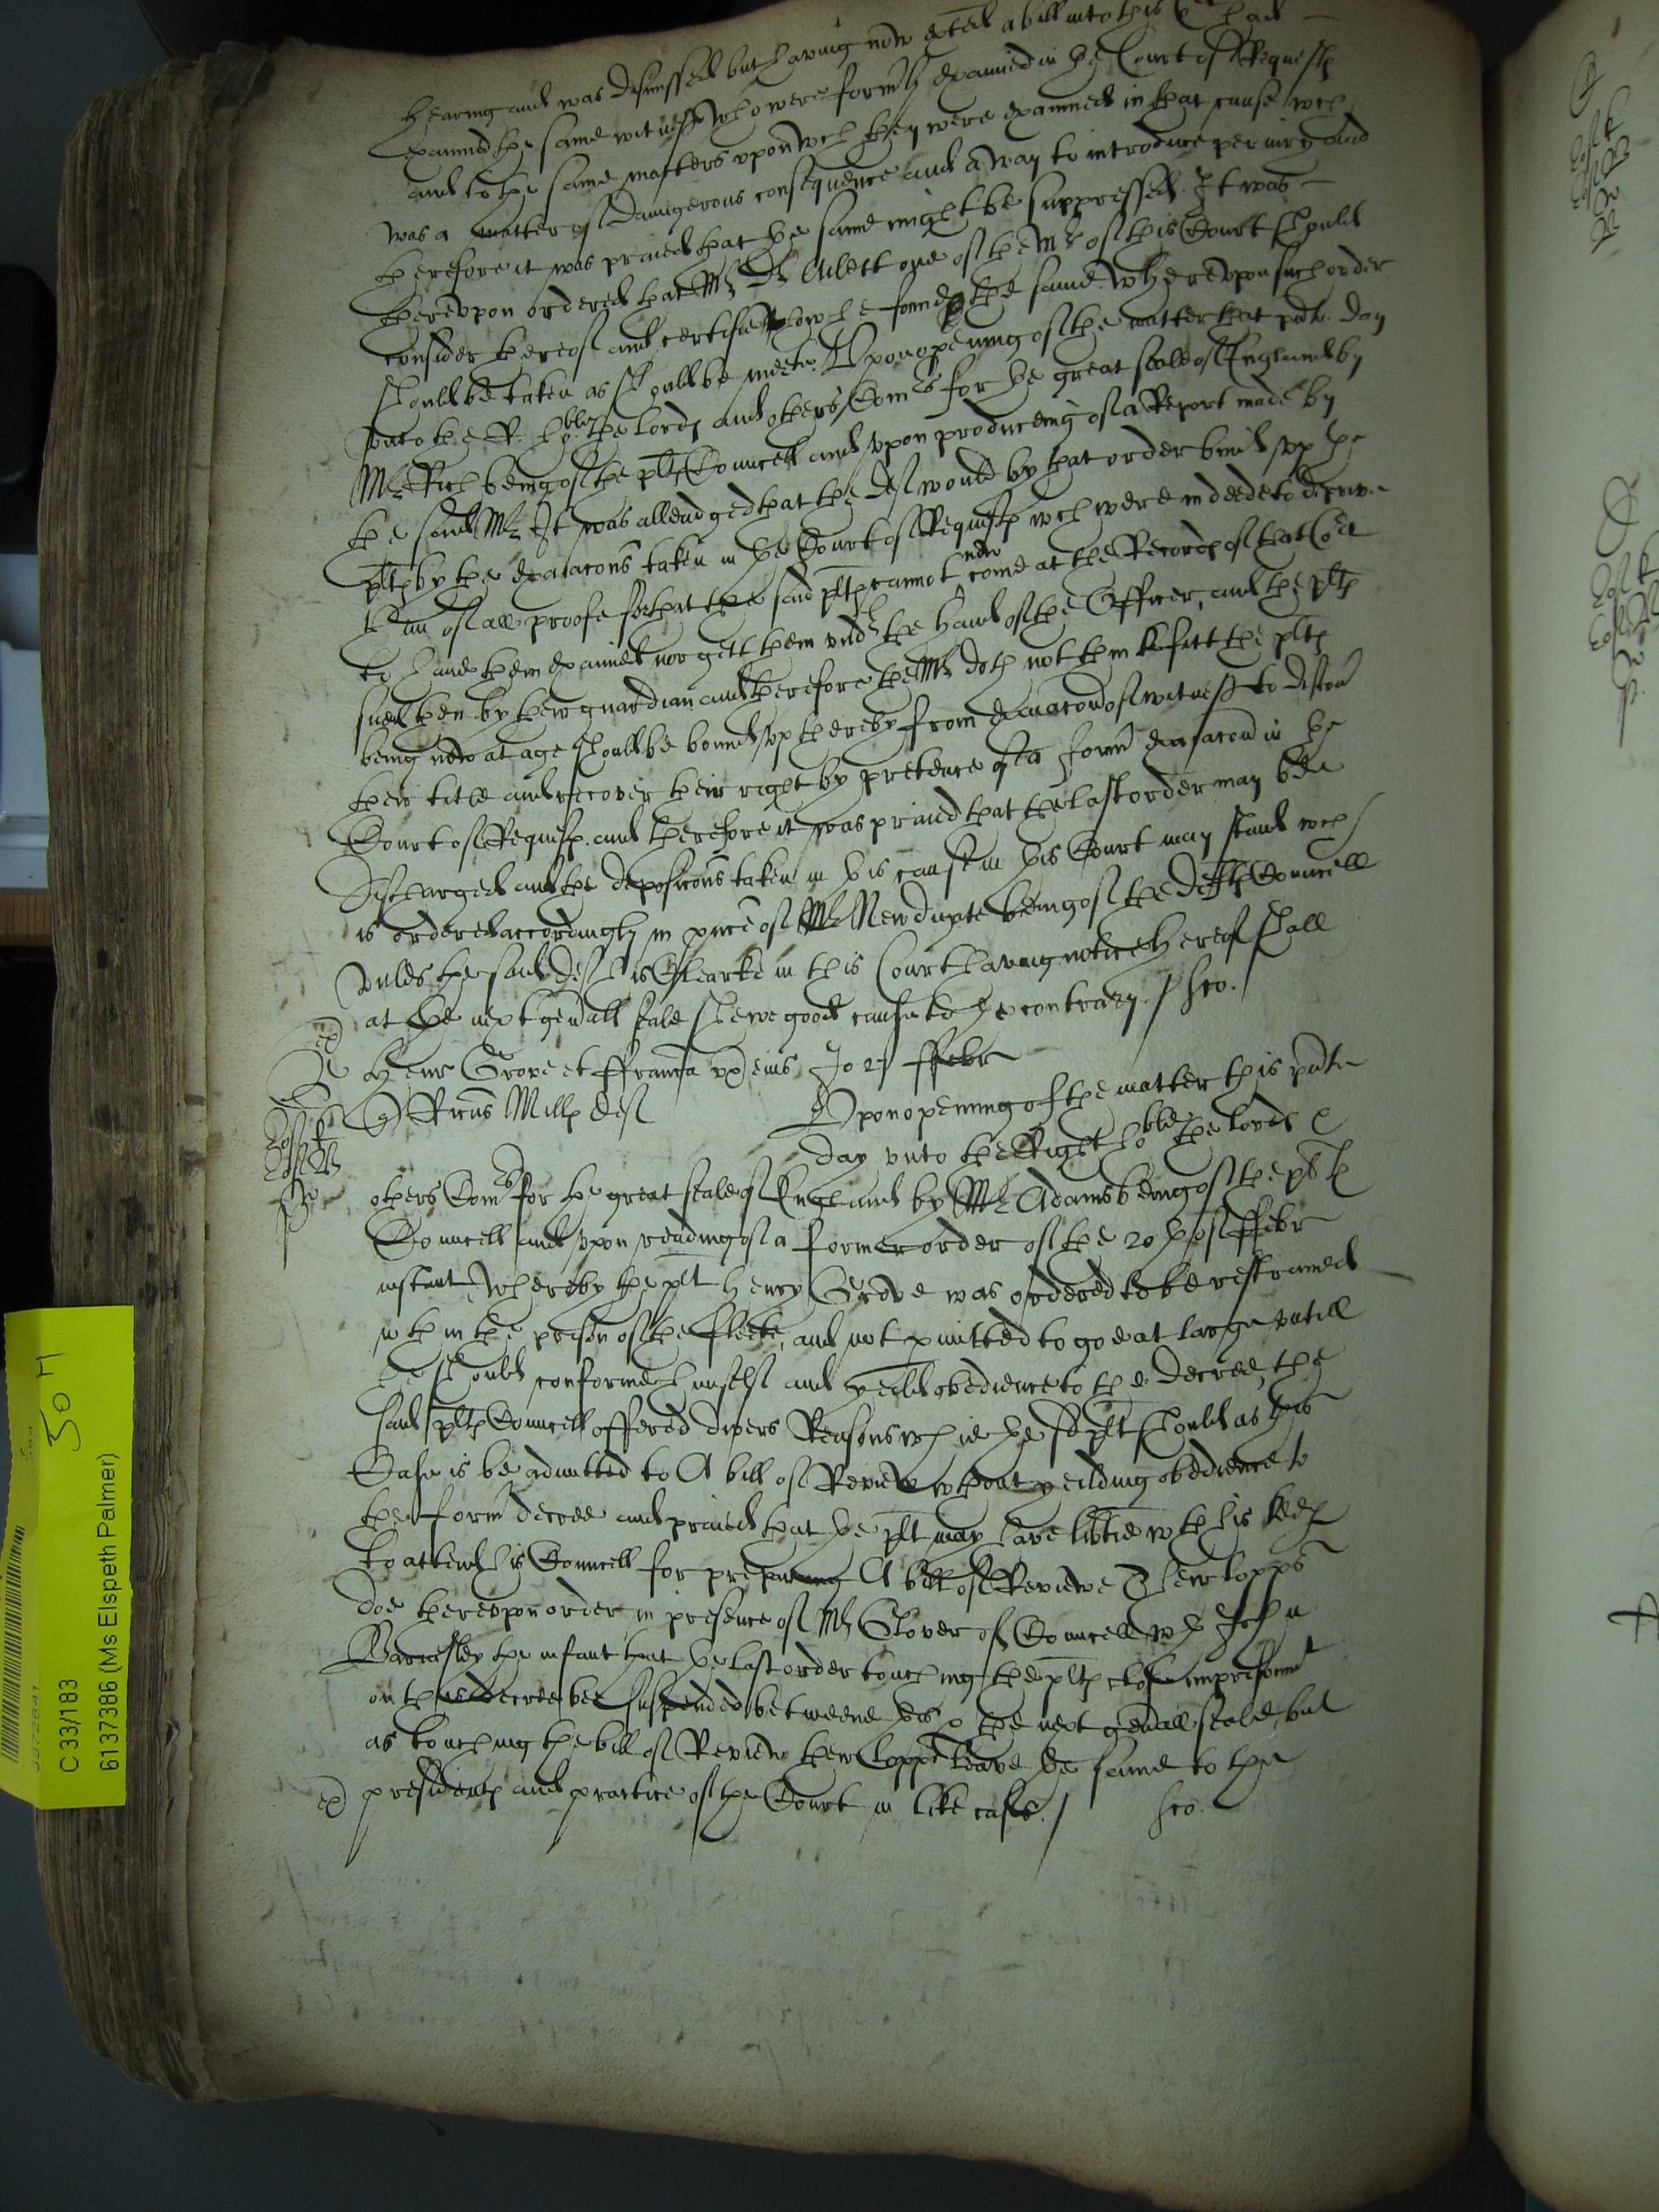 hearing and was dismissed but having now exhted a bill into this Cort had
examined the same witnesses who were formrly examined in the Court of Requests
and to the same matters upon wch they were examined in that cause wch
was a matter of daungerous consequence and a way to introduce periury and
therefore it was praied that the same might be suppressed. It was
therevpon ordered that Mr Dr Aylett one of the Mrs of this Court should
consider thereof and certifie how he found the same wherevpon such order
should be taken as should be meete. Vpon opening of the matter that pnte day
vnto the R. hoble the lords and others Comrs for the great seale of England by
Mr Rich being of the plts Councell and vpon produceing of a Report made by
the said Mr It was alleadged that the deft would by that order bind vp the
plts by the exaiacons taken in the Court of Requests wch were indeede to deprive
them of all proofe for that the said plts cannot now come at the Records of that Cort
to have them examined nor gett them vndr the hand of the Officer, and the plts
sued then by their guardian and therefore the Mr doth not thinke fitt the plts
being now at age should be bound vp thereby from exaiacon of witnesses to discovr
their title and recover their right by pretence of a formr exaiacon in the
Court of Requests. and therefore it was praied that the last order may bee
discharged and the deposicons taken in this cause in this Court may stand wch
is ordered accordingly in pnce of Mr Newdigate being of the defts Councell
vnles the said deft his Clearke in this Court having notice hereof shall
at the next genall seale shewe good cause to the contrary./ Sco.
ex
Henr Grove et ffranca vx eius Jo 27 ffebr
Ricus Mills def
Vpon opening of the matter this pnte
day vnto the Right hoble the lords &
others Comrs for the great seale of England by Mr Adams being of the plts
Councell and vpon reading of a former order of the 20th of ffebr
instant whereby the plt Henry Grove was ordered to be restrained
wthin the prison of the fleete, and not pmitted to goe at large vntill
he should conforme himself and yeild obedience to the decree, the
said plts Councell offered divers Reasons why the sd plt should as this
Case is be admitted to A bill of Review wthout yeilding obedience to
the formr decree and praied that the plt may have libtie wth his keepr
to attend his Councell for prepareing A bill of Reviewe Their lopps
doe therevpon order in presence of Mr Glover of Councell wth John
Barnesley the infant that the last order touching the plts close imprisonmt
on the decree bee suspended betweene this & the next genall seale, but
as touching the bill of Review their lopps leave the same to the
ex presidents and practice of the Court in like cases./ Sco.
C 33/183
6137386 (Ms Elspeth Palmer)